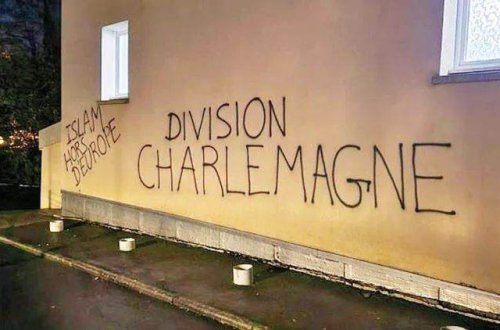 ISLAM
HORS
D'EUROPE
DIVISION
CHARLEMAGNE